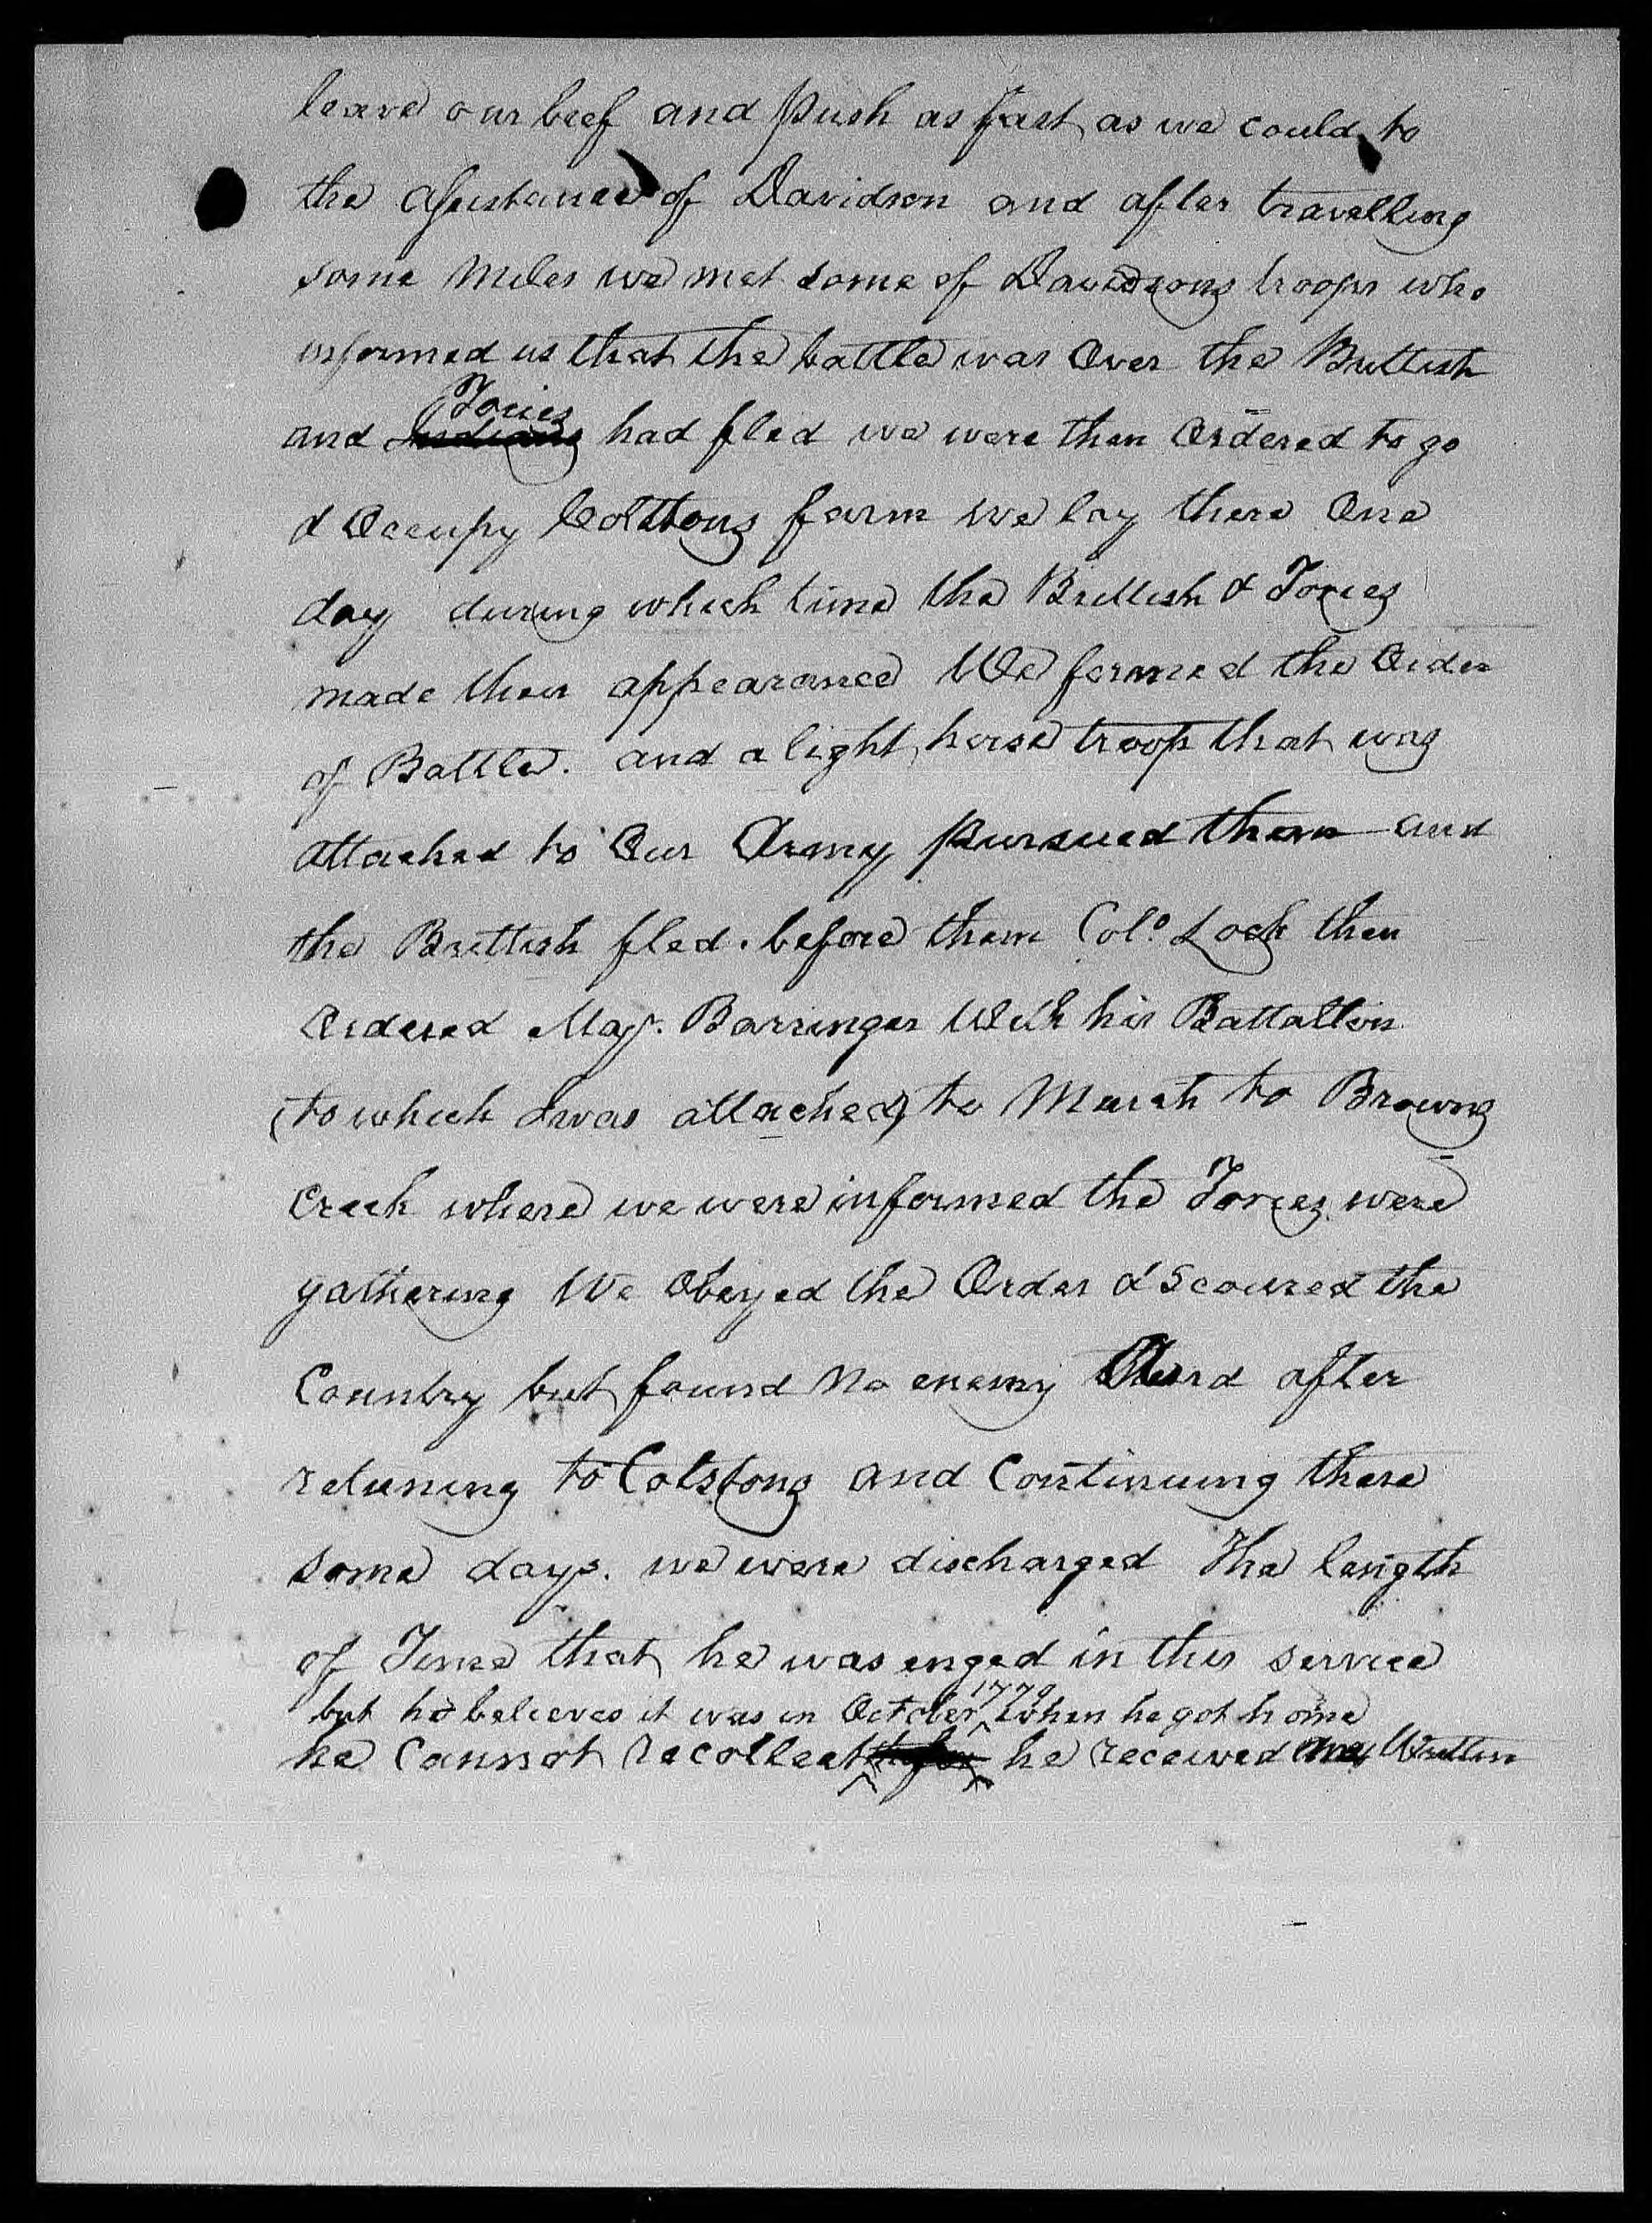 leave our beef and push as fast as we could to
the assistance of Davidson and after travelling
some miles we met some of Davidsons troops who
informed us that the battle was Over the Brittish
Tories
and Indians had fled we were then Ordered to go
& Occupy Colttons farm we lay there One
day during which time the Brittish & Tories
made their appearance We formed the Order
of Battle. and a light horse troop that was
attached to Our Army pursued them and
the Brittish fled. before them Colo. Lock then
Ordered Maj. Barringer With his Battallion
(to which I was attached) to March to Browns
Creek where we were informed the Tories were
gathering We Obeyed the Order & Scoured the
Country but found No enemy And after
retuning to Colstons and Continuing there
some days. we were discharged The length
of Time that he was enged in this service
but he believes it was in October 1779 when he got home
he Cannot recollect he received any Written